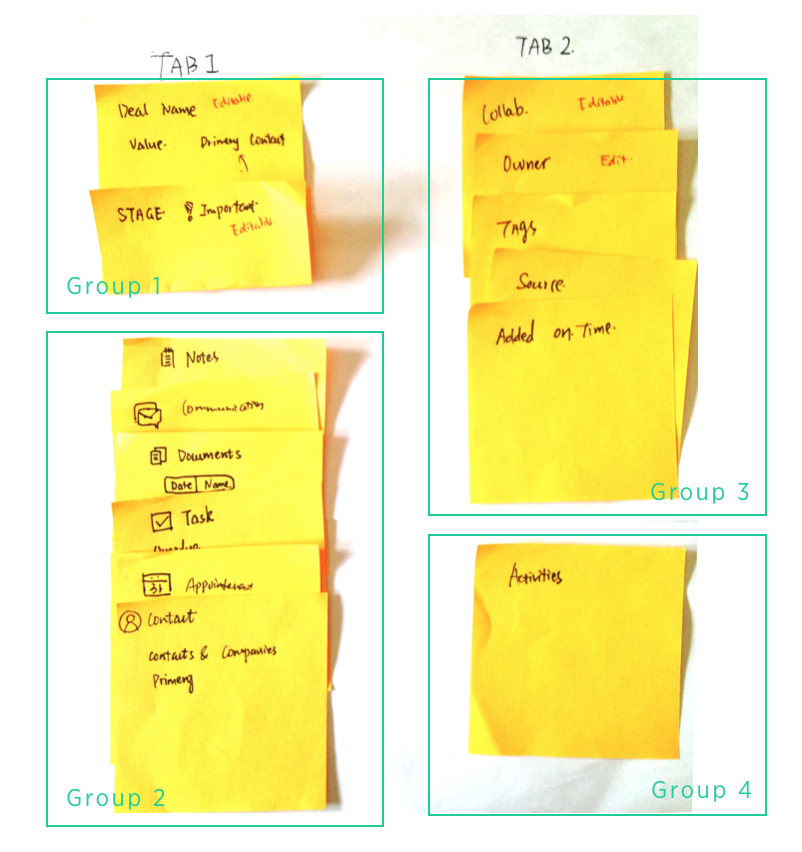 TAB 1
Deal Name Editable
Value. Primary Contact
STAGE Important.
Editable
Group 1
Notes
Communication
Documents
Date Name
Task
31 Appointment
Contact
Contacts & Companies
Group 2
TAB 2.
Collab. Editable
Owner Edit.
Tags
Source.
Added on. Time.
Group 3
Activities
Group 4